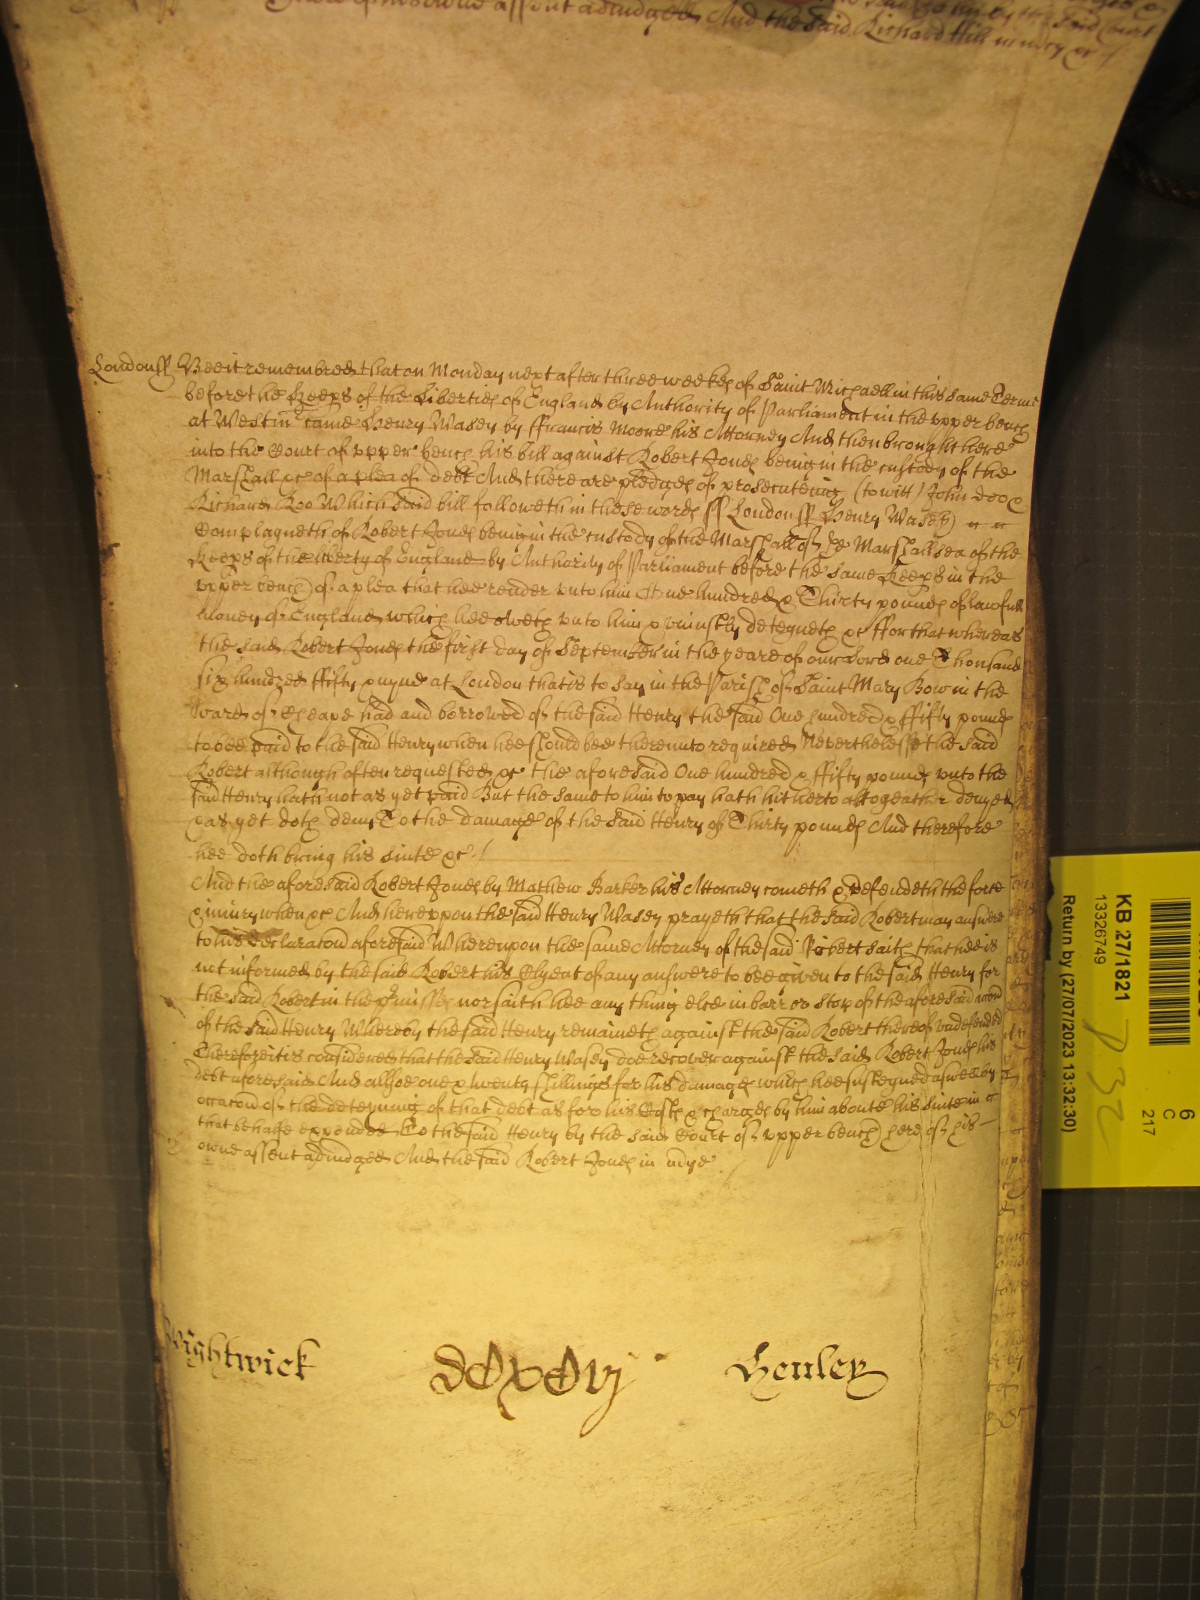 owne assent adiudged And the said Richard Hill in mcy &c
London ss Bee it remembred that on Monday next after three weekes of Saint Michaell in this same Terme
before the Keeps of the Liberties of England by Authority of Parliament in the vpper bench
at Westm̃ came Henry Wasey by ffrancis Moore his Attorney And then brought here
into the Court of vpper bench his bill against Robert Jones being in the custody of the
Marshall &c of a plea of debt And there are pledges of prosecuteing (to witt) John Doo &
Richard Roo Which said bill followeth in these words ss London ss Henry Wasey
Complayneth of Robert Jones being in the custody of the Marshall of ye Marshallsea of the
Keeps of the liberty of England by Authority of Parliament before the same Keeps in the
vpper bench of a plea that hee render vnto him One hundred & Thirty pounds of lawfull
money of England which hee oweth vnto him & vniustly deteyneth &c ffor that whereas
the said Robert Jones the first day of September in the yeare of our Lord one Thousand
six hundred ffifty & nyne at London that is to say in the Parish of Saint Mary Bow in the
Ward of Cheape had and borrowed of the said Henry the said One hundred & ffifty pounds
to bee paid to the said Henry when hee should bee thereunto required Neverthelesse the said
Robert although often requested &c the aforesaid One hundred & ffifty pounds vnto the
said Henry hath not as yet paid But the same to him to pay hath hitherto altogeather denyed
& as yet doth deny To the damage of the said Henry of Thirty pounds And therefore
hee doth bring his suite &c
And the aforesaid Robert Jones by Mathew Barker his Attorney cometh & defendeth the force
& iniury when &c And herevpon the said Henry Wasey prayeth that the said Robert may answere
to his declaracon aforesaid Wherevpon the same Attorney of the said Robert saith that hee is
not informed by the said Robert his Clyent of any answere to bee given to the said Henry for
the said Robert in the p̃misses nor saith hee any thing else in barr or stop of the aforesaid accon
of the said Henry Whereby the said Henry remaineth against the said Robert thereof vndefended
Therefore it is considered that the said Henry Wasey doe recover against the said Robert Jones his
debt aforesaid And allsoe one & twenty shillings for his damages which hee susteyned aswell by
occacon of the deteyning of that debt as for his Costs & charges by him aboute his suite in
that behalfe expended To the said Henry by the said Court of vpper bench here of his
owne assent adiudged And the said Robert Jones in mcye
Wightwick
Henley
KB 27/1821
13326749
Return by (27/07/2023 13:32:30)
6
C
217